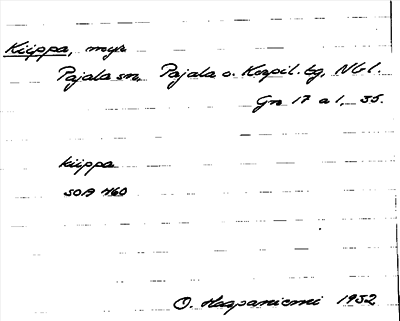 Kiippa, myr
Pajala sn, Pajala o. Korpil. tg, Nbl.
Gn 17 a 1, 35.
kiippa
SOA 460
O. Haapaniemi 1932